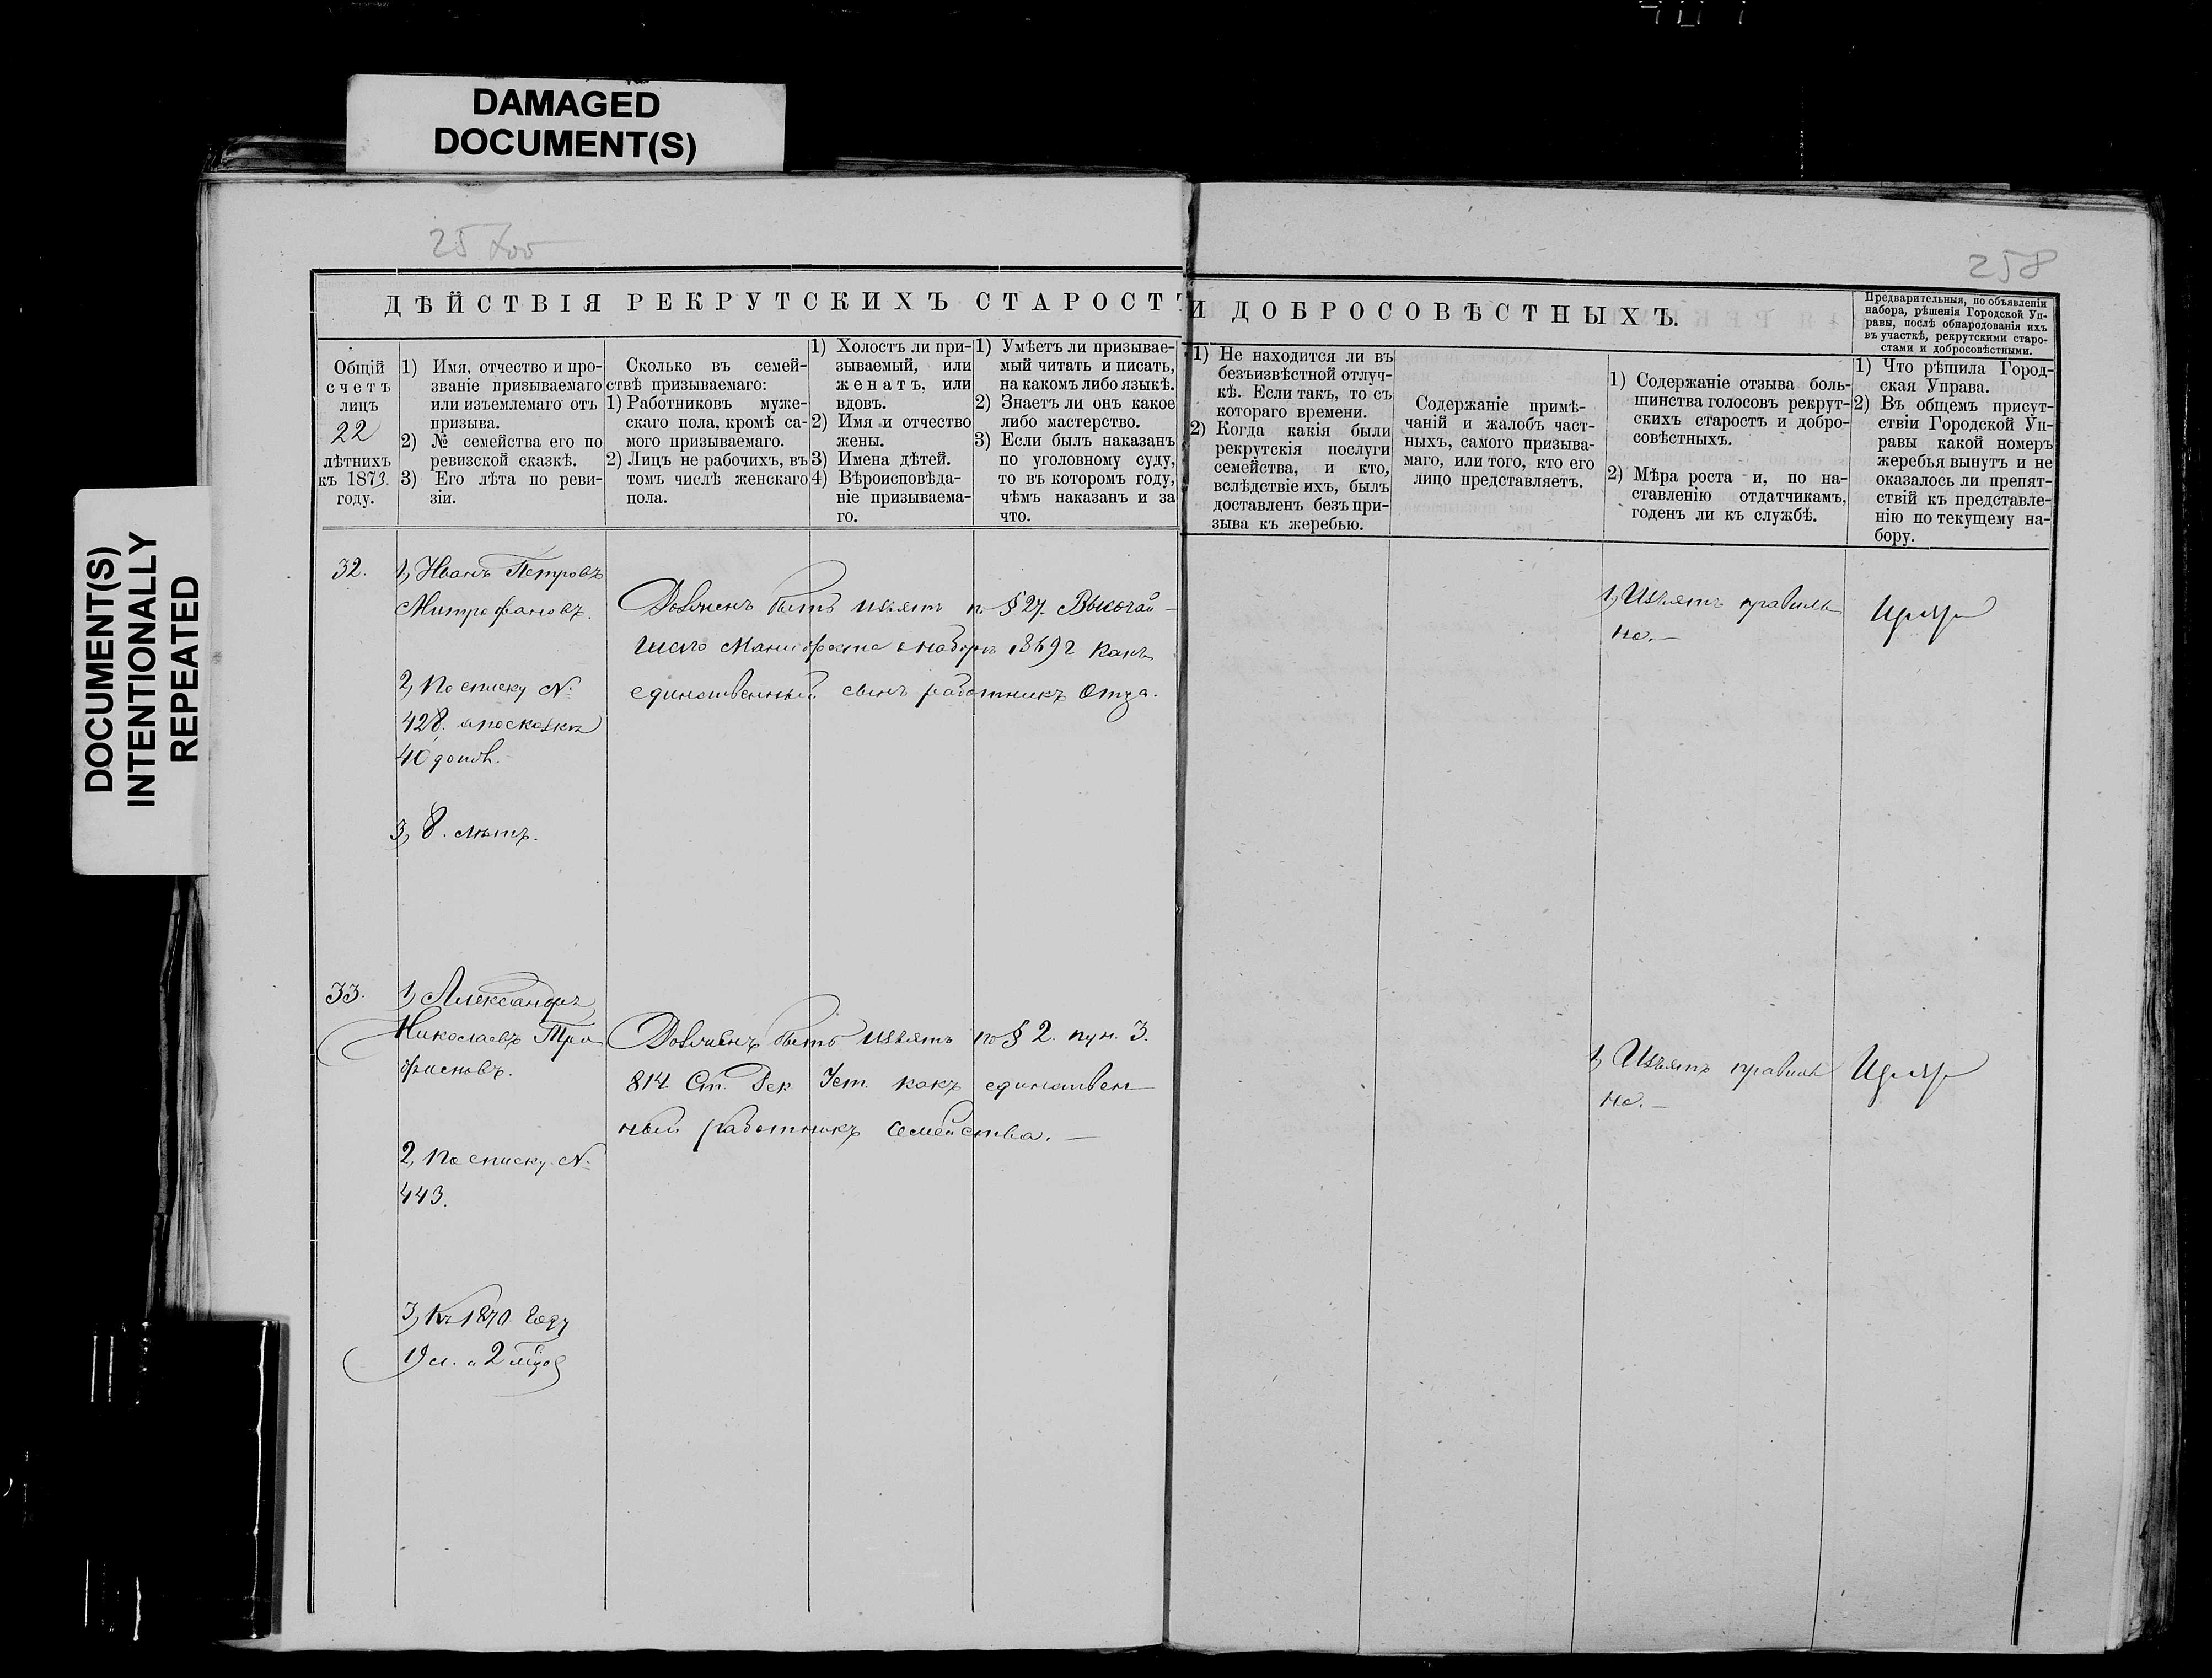 DAMAGED
DOCUMENT(S)
DOCUMENT(S)
INTENTIONALLY
REPEATED
258
ДѢЙСТВІЯ РЕКРУТСКИХЪ СТАРОСТЪ И ДОБРОСОВѢСТНЫХЪ.
Предварительныя, по объявленіи
набора, рѣшенія Городской Уп-
равы, послѣ обнародованія ихъ
въ участкѣ, рекрутскими старо-
стами и добросовѣстными.
Общій
счетъ
лицъ
22
лѣтнихъ
къ 1873.
году.
1) Имя, отчество и про-
званіе призываемаго
или изъемлемаго отъ
призыва.
2) № семейства его по
ревизской сказкѣ.
3) Его лѣта по реви-
зіи.
Сколько въ семей-
ствѣ призываемаго:
1) Работниковъ муже-
скаго пола, кромѣ са-
мого призываемаго.
2) Лицъ не рабочихъ, въ
томъ числѣ женскаго
пола.
1) Холостъ ли при-
зываемый, или
женатъ, или
вдовъ.
2) Имя и отчество
жены.
3) Имена дѣтей.
4) Вѣроисповѣда-
ніе призываема-
го.
1) Умѣетъ ли призывае-
мый читать и писать,
на какомъ либо языкѣ.
2) Знаетъ ли онъ какое
либо мастерство.
3) Если былъ наказанъ
по уголовному суду,
то въ которомъ году,
чѣмъ наказанъ и за
что.
1) Не находится ли въ
безъизвѣстной отлуч-
кѣ. Если такъ, то съ
котораго времени.
2) Когда какія были
рекрутскія послуги
семейства, и кто,
вслѣдствіе ихъ, былъ
доставленъ безъ при-
зыва къ жеребью.
Содержаніе примѣ-
чаній и жалобъ част-
ныхъ, самого призыва-
маго, или того, кто его
лицо представляетъ.
1) Содержаніе отзыва боль-
шинства голосовъ рекрут-
скихъ старостъ и добро-
совѣстныхъ.
2) Мѣра роста и, по на-
ставленію отдатчикамъ,
годенъ ли къ службѣ.
1) Что рѣшила Город-
ская Управа.
2) Въ общемъ присут-
ствіи Городской Уп-
равы какой номеръ
жеребья вынутъ и не
оказалось ли препят-
ствій къ представле-
нію по текущему на-
бору.
32.
1, Иванъ Петровъ
Митрофановъ.
2, По списку №
428. а по сказкѣ
40 допол.
3, 8. лѣтъ.
Долженъ быть изъятъ по § 27. Высочай-
шаго Манифеста о наборѣ 1869 г какъ
единственный сынъ работникъ отца.
1, Изъятъ правиль
но.—
33.
1, Александръ
Николаевъ
2, По списку №
443.
3, Къ 1870 году
19 л. и 2
Долженъ быть изъятъ по § 2. пун. 3.
814 Ст. Рек Уст. какъ единствен
ный работникъ семейства.—
1, Изъятъ правиль
но.—